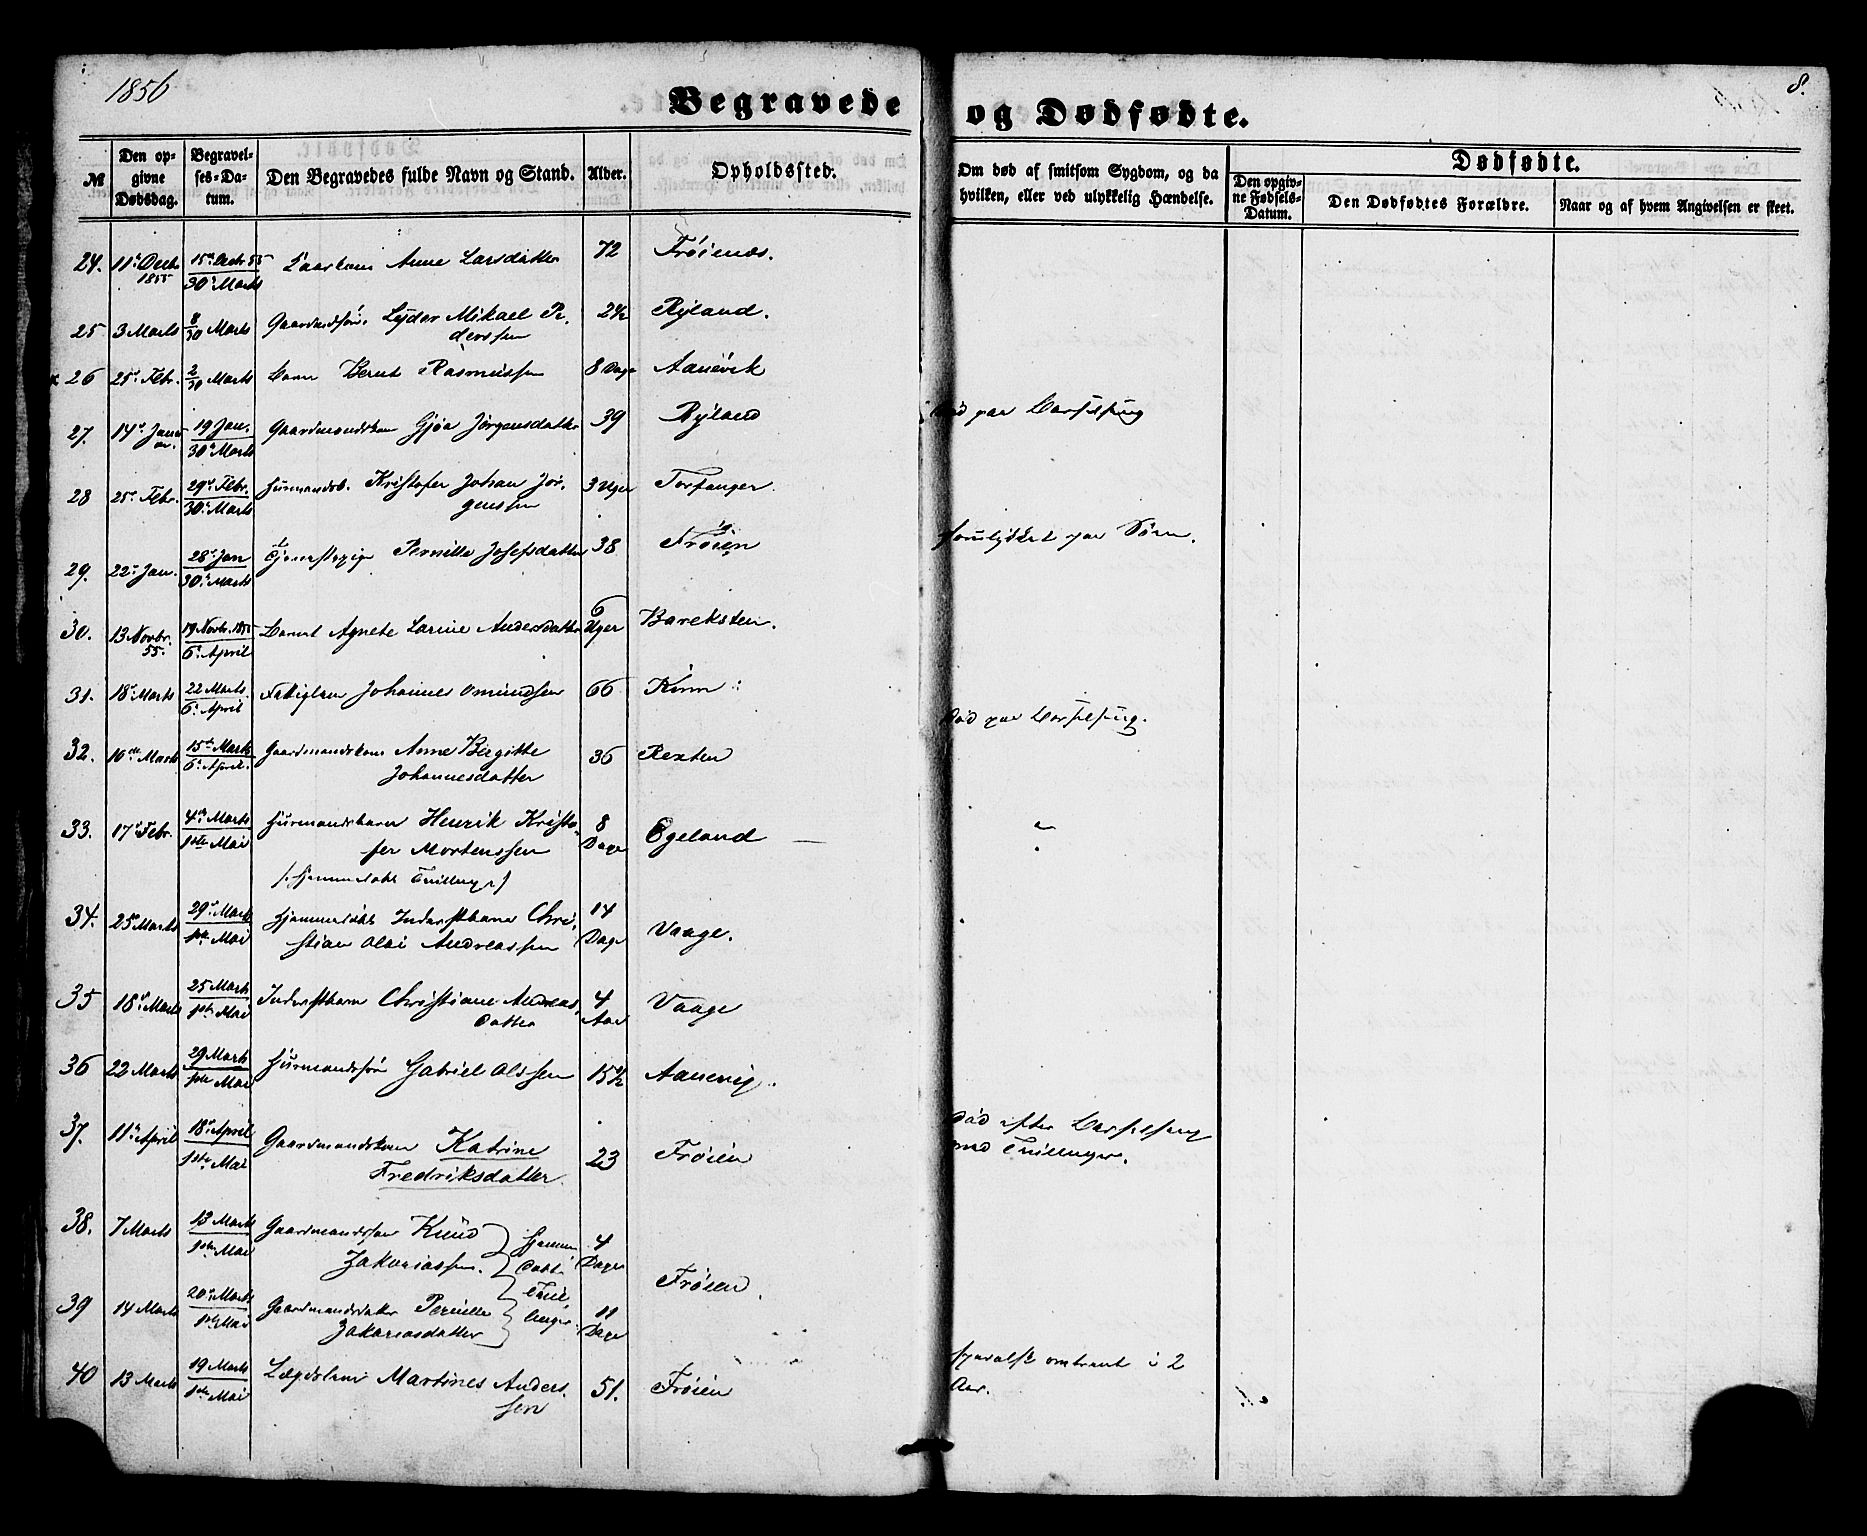 1856
8.
Begravede og Dødfødte.
№
Den opgivne Dødsdag.
Begravelses-Datum.
Den Begravedes fulde Navn og Stand.
Alder.
Opholdssted.
Om død af smitsom Sygdom, og da hvilken, eller ved ulykkelig Hændelse.
Dødfødte.
Den opgivne Fødsels-Datum.
Den Dødfødtes Forældre.
Naar og af hvem Angivelsen er skeet.
24. 11te Decbr 1855 15de Decbr. 55 / 30te Marts Anne Larsdatter 72 Frøienæs.
25 3 Marts 8/30 Marts Gaardmandssøn Lyder Mikael Pederssen 2½ Ryland.
26 25de Febr. 2/30 Marts Barn Bernt Rasmussen 8 Dage Aanevik
27. 14de Januar. 19 Jan. / 30te Marts Gaardmandskone Gjøa Jørgensdatter 39 Ryland Død paa Barselseng
28 25de Febr. 29de Febr. / 30te Marts Huusmandsb. Kristofer Johan Jørgenssen 3 Uger Torfanger
29. 22de Jan. 28de Jan / 30te Marts Tjenestepige Pernille Josefsdatter 38 Frøien forulykket paa Søen.
30. 13 Novbr. 55. 19 Novbr. 1855 / 6te April Barnet Agnete Larine Andersdatter 6 Uger Bareksten.
31. 18de Marts 22 Marts / 6te April Johannes Omundsen 66 Kinn
32. 10de Marts 15de Marts / 6te April. Gaardmandskone Anne Birgitte Johannesdatter 36 Rexten Død paa Barselseng.
33. 17de Febr. 4de Marts / 1ste Mai Huusmandsbarn Henrik Kristofer Mortenssen 8 Dage Egeland
/: Hjemmedøbt Tvilling :/
34. 25de Marts 29de Marts / 1ste Mai Hjemmedøbt Inderstbarn Christian Olai Andreassen 14 Dage Vaage.
35 18de Marts 25 Marts / 1ste Mai Inderstbarn Christiane Andreasdatter 4 Aar Vaage
36 22 Marts 29 Marts / 1ste Mai Huusmandssøn Gabriel Olssen 15½ Aanevig.
37. 11te April 18de April / 1ste Mai Gaardmandskone Katrine Fredriksdatter. 23 Frøien Død efter Barselseng med Tvillinger.
38. 7 Marts 13 Marts / 1ste Mai Gaardmandssøn Knud Zakariassen. 4 Dage
Hjemmedøbte Tvillinger. Frøien.
39 14 Marts 20de Marts / 1ste Mai Gaardmandsdatter Pernille Zakariasdatter 11 Dage
40 13 Marts 19 Marts / 1ste Mai Lægdslem Martines Anderssen 51. Frøien omtrent i 2 Aar.